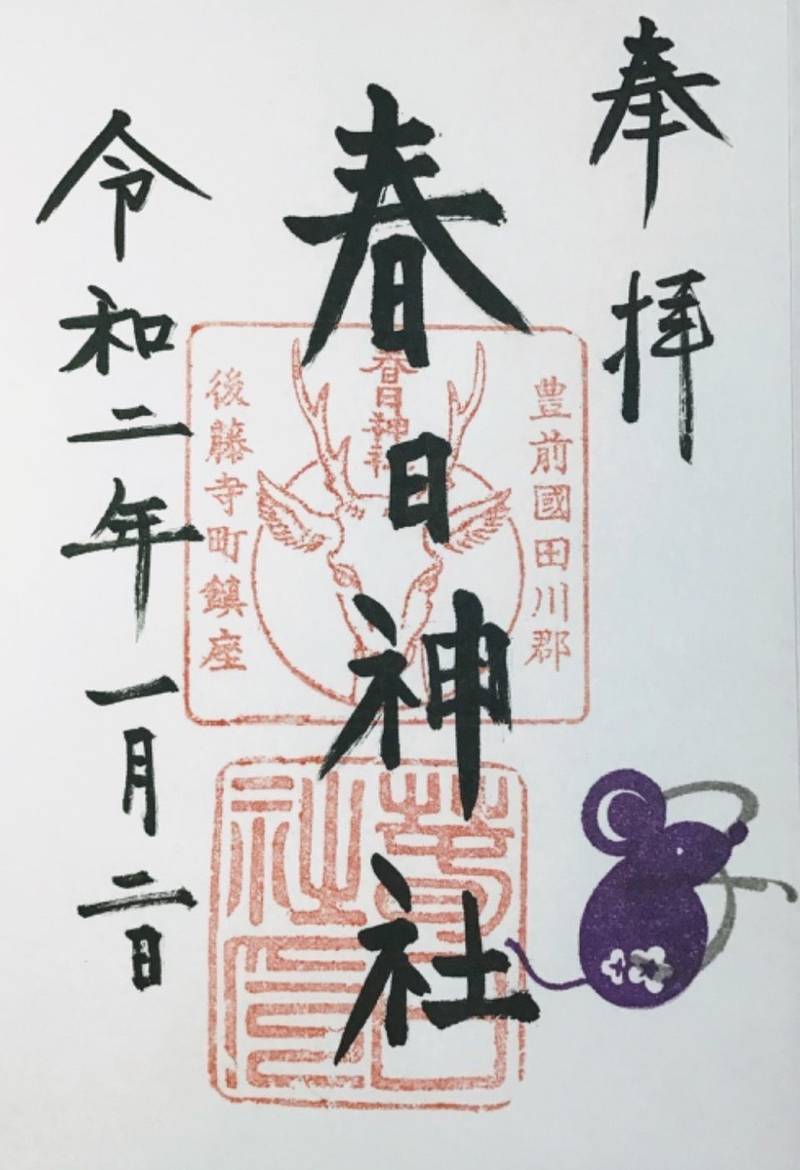 奉拝
豊前國田川郡
春日神社
春日神社
後藤寺町鎮座
春日社印
令和二年一月二日